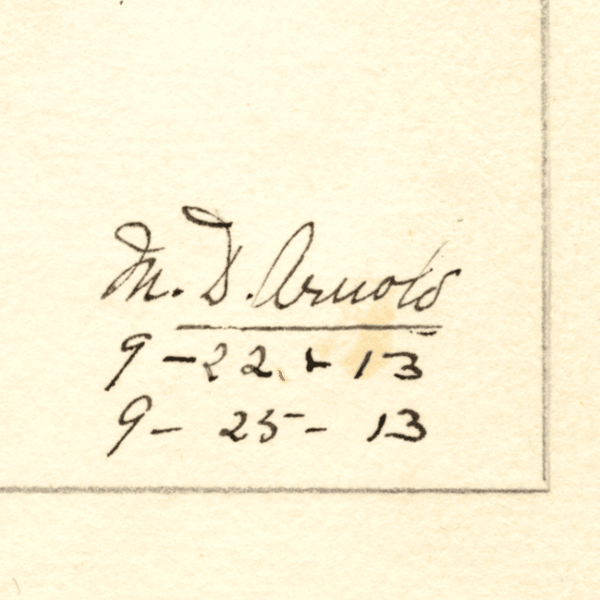 M. D. Arnold
9-22-13
9-25-13